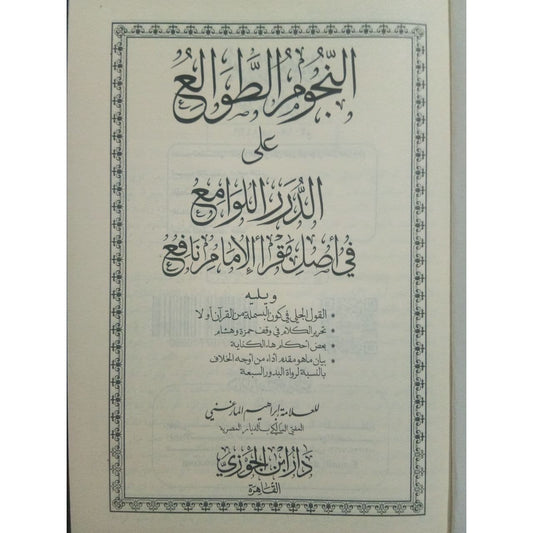 النجوم الطوالع
على
الدرر اللوامع
في أصل مقرأ الإمام نافع
ويليه
القول الجلي في كون البسملة من القرآن أو لا
تحرير الكلام في وقف حمزة وهشام
بعض أحكام هاء الكناية
بيان ما هو مقدم أداء من أوجه الخلاف
بالنسبة لرواة البدور السبعة
للعلامة إبراهيم المارغني
المفتي المالكي بالديار المصرية
دار ابن الجوزي
القاهرة